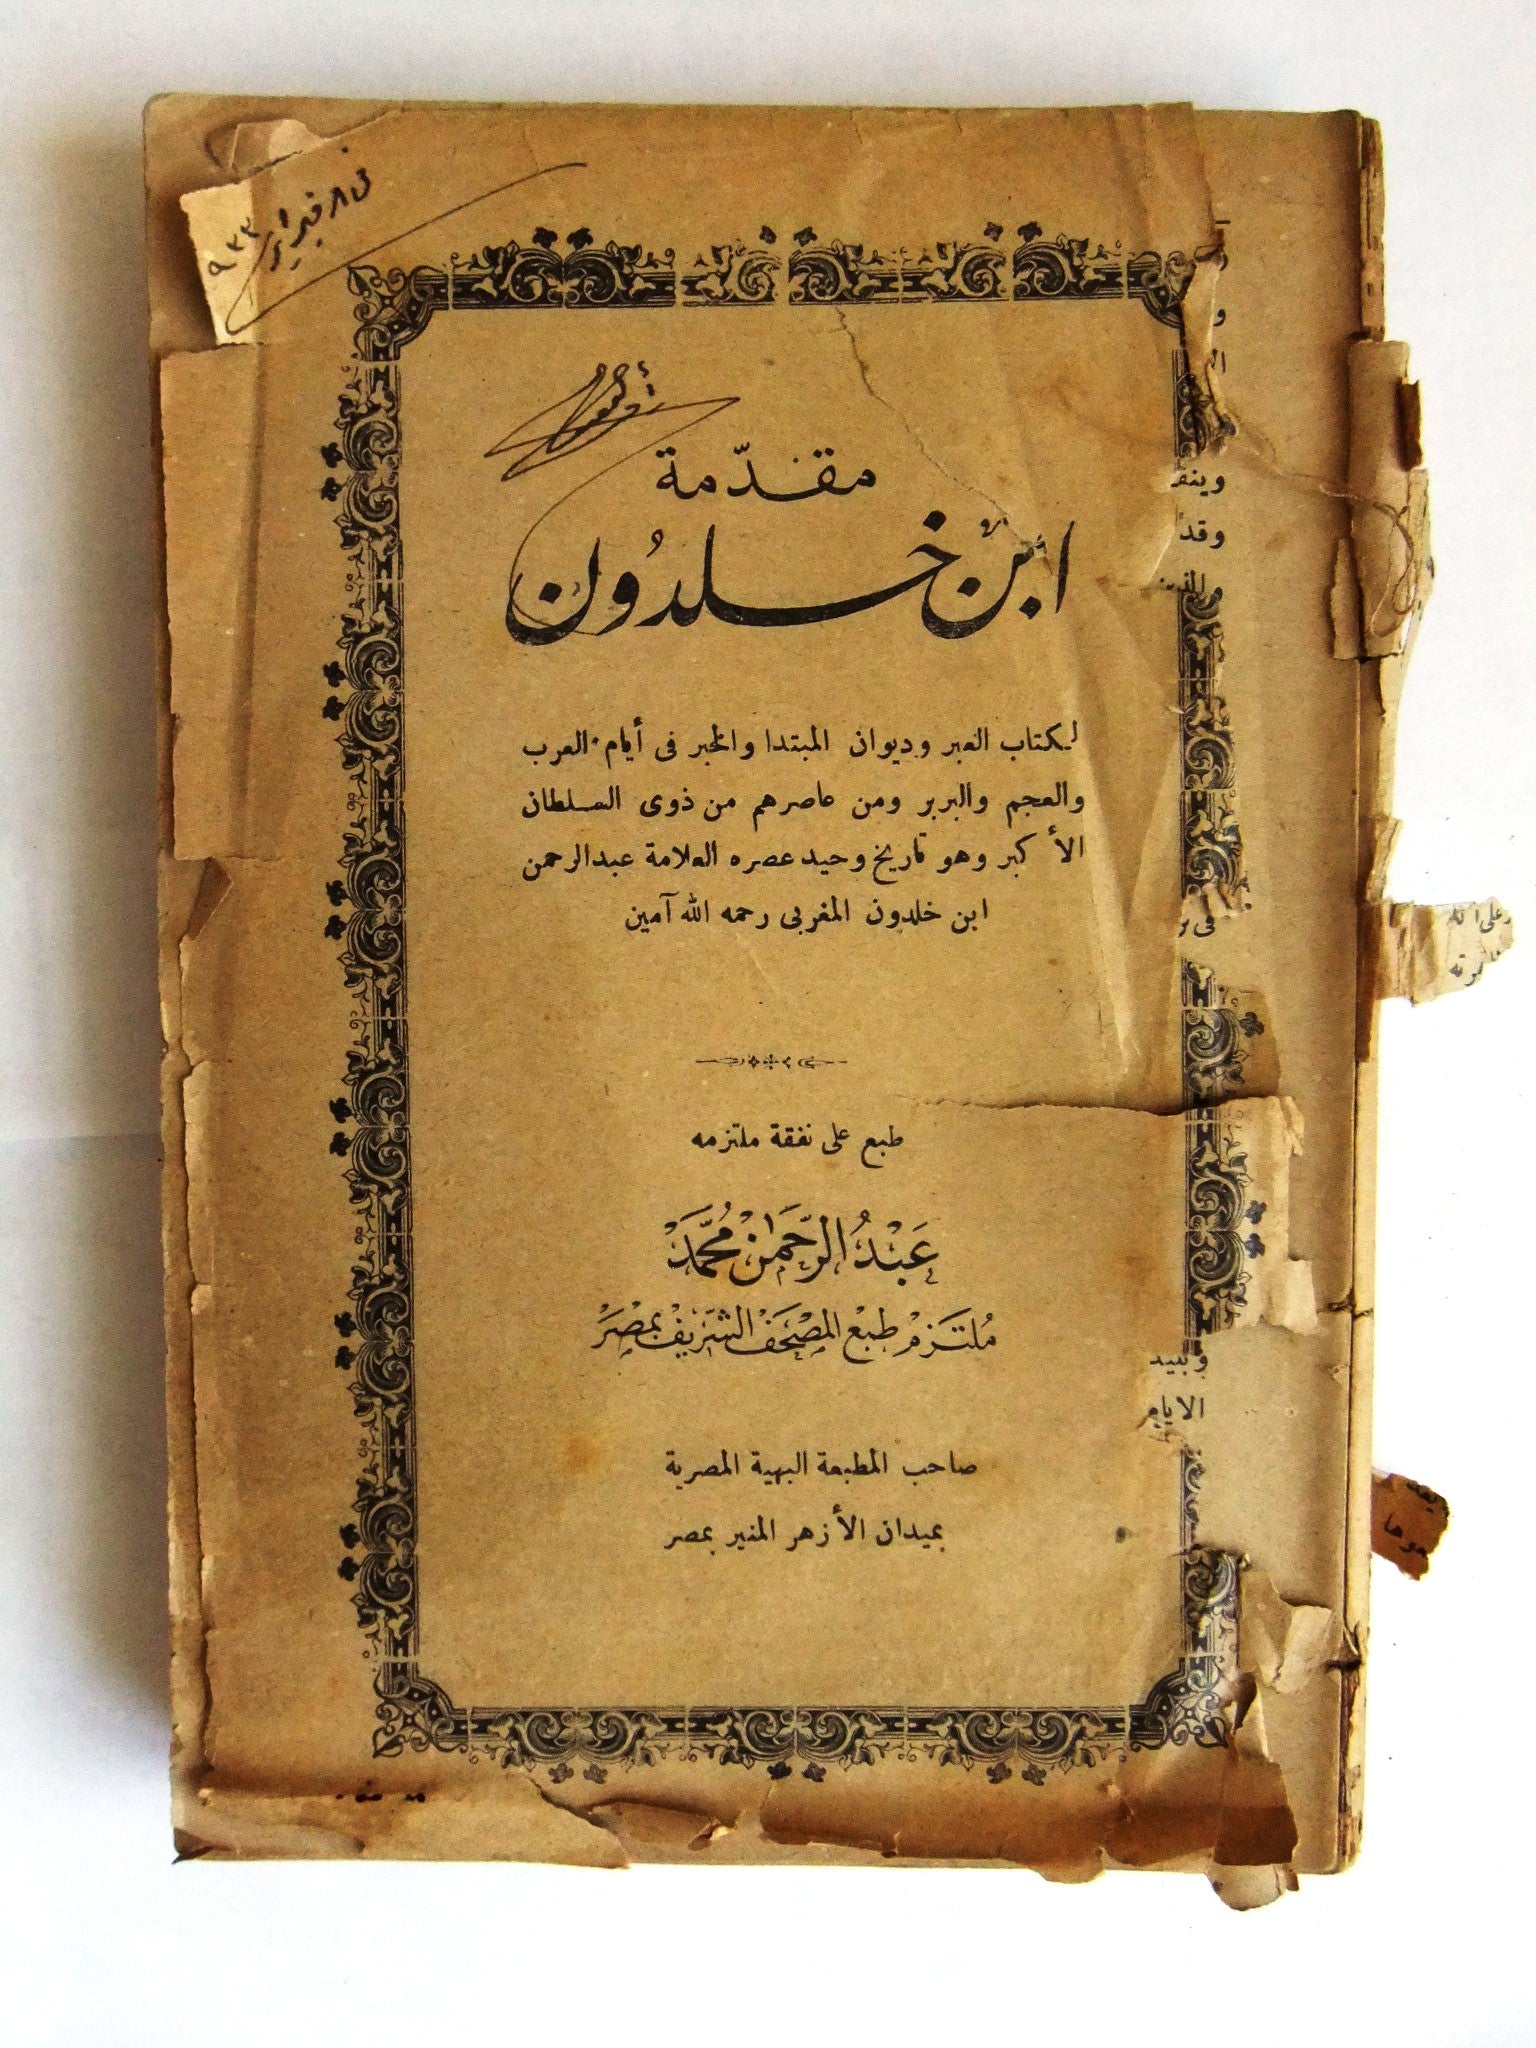 فى ٨ فبراير ٩٣٣
مقدّمة
ابن خلدُون
لكتاب العبر وديوان المبتدا والخبر فى أيام العرب
والعجم والبربر ومن عاصرهم من ذوى السلطان
الأكبر وهو تاريخ وحيد عصره العلامة عبدالرحمن
ابن خلدون المغربى رحمه الله آمين
طبع على نفقة ملتزمه
عَبْدُ الرَّحمَنْ مُحَمَّدْ
مُلتَزمْ طبْعْ المصْحَفْ الشَريْفْ بمْصرْ
صاحب المطبعة البهية المصرية
بميدان الأزهر المنير بمصر
وقد
وبيد
الايام